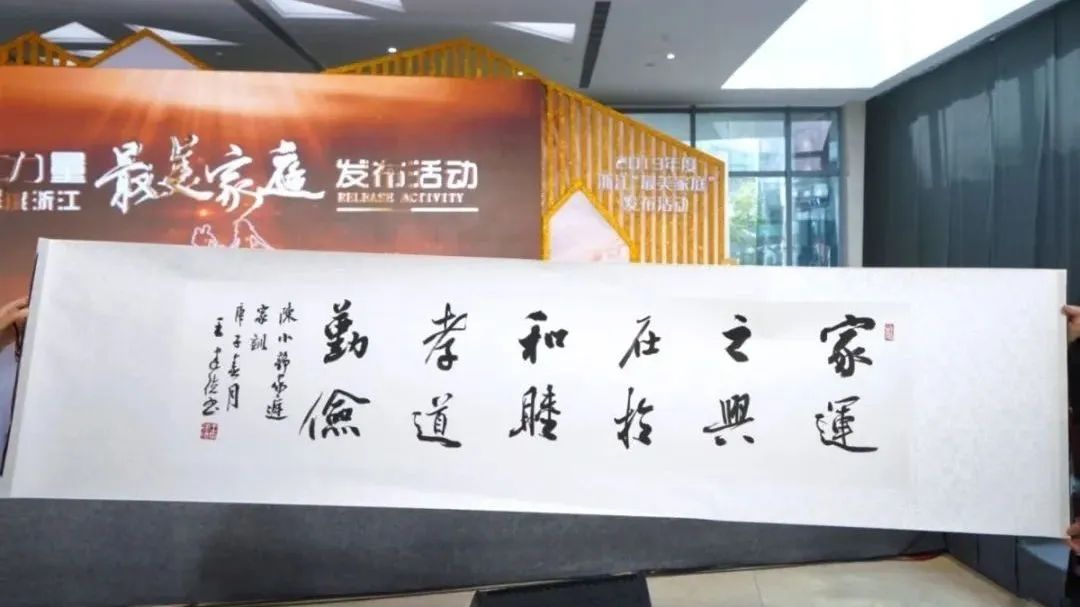 力量
展浙江
最美家庭
发布活动
RELEASE ACTIVITY
2019年度
浙江"最美家庭"
发布活动
家運
之興
在於
和睦
孝道
勤儉
陳小
家訓
庚子春月
王